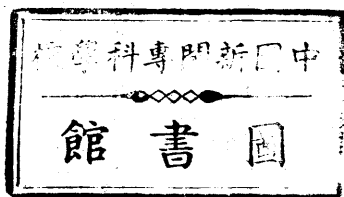 中国新聞專科學校
圖書館